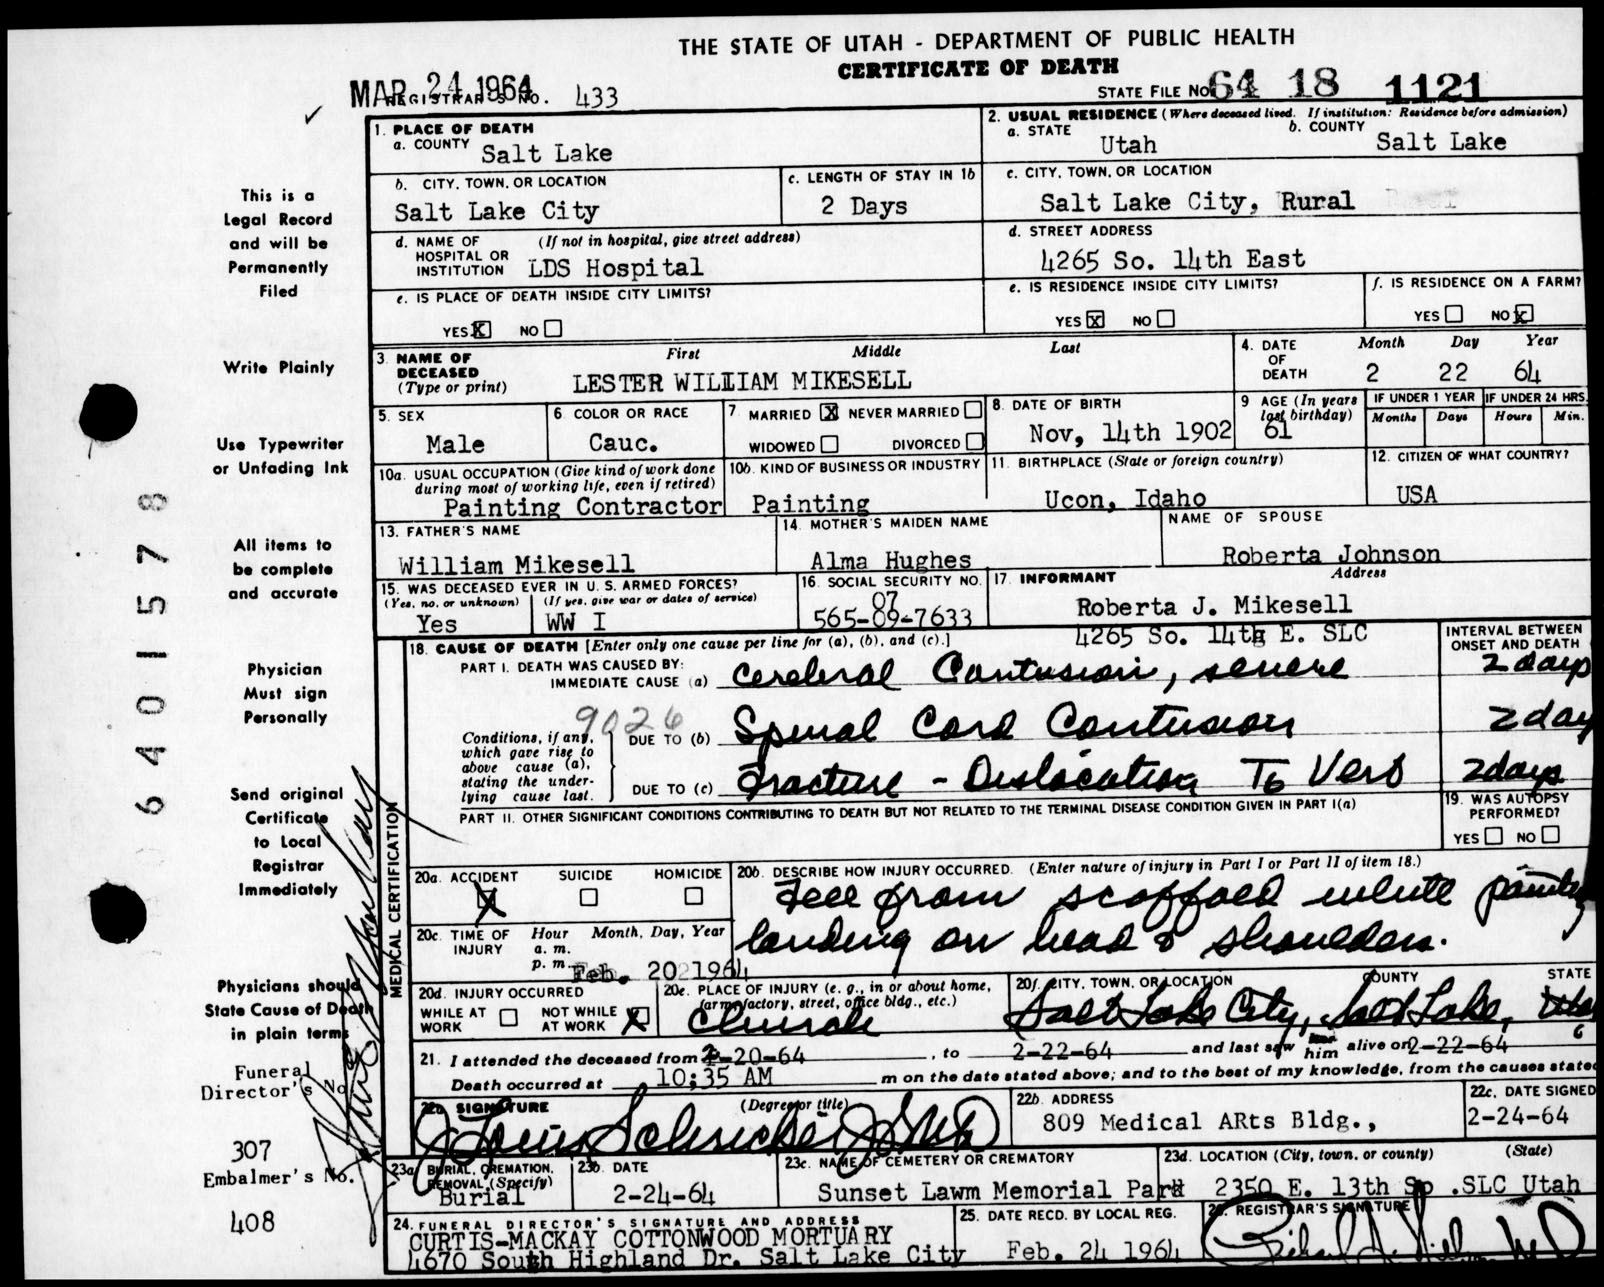 THE STATE OF UTAH - DEPARTMENT OF PUBLIC HEALTH
CERTIFICATE OF DEATH
MAR 24 1964
REGISTRAR'S NO. 433
STATE FILE NO. 64 18 1121
This is a
Legal Record
and will be
Permanently
Filed
Write Plainly
Use Typewriter
or Unfading Ink
All items to
be complete
and accurate
Physician
Must sign
Personally
Send original
Certificate
to Local
Registrar
Immediately
Physicians should
State Cause of Death
in plain terms
Funeral
Director's No.
307
Embalmer's No.
408
6401578
1. PLACE OF DEATH
a. COUNTY Salt Lake
2. USUAL RESIDENCE (Where deceased lived. If institution: Residence before admission)
a. STATE Utah b. COUNTY Salt Lake
b. CITY, TOWN, OR LOCATION Salt Lake City
c. LENGTH OF STAY IN 1b 2 Days
c. CITY, TOWN, OR LOCATION
Salt Lake City, Rural
d. NAME OF HOSPITAL OR INSTITUTION (If not in hospital, give street address)
LDS Hospital
d. STREET ADDRESS
4265 So. 14th East
e. IS PLACE OF DEATH INSIDE CITY LIMITS?
YES X NO
e. IS RESIDENCE INSIDE CITY LIMITS?
YES X NO
f. IS RESIDENCE ON A FARM?
YES NO X
3. NAME OF DECEASED (Type or print) First Middle Last
LESTER WILLIAM MIKESELL
4. DATE OF DEATH Month Day Year
2 22 64
5. SEX Male
6. COLOR OR RACE Cauc.
7. MARRIED X NEVER MARRIED
WIDOWED DIVORCED
8. DATE OF BIRTH
Nov, 14th 1902
9 AGE (In years last birthday) 61
IF UNDER 1 YEAR IF UNDER 24 HRS.
Months Days Hours Min.
10a. USUAL OCCUPATION (Give kind of work done during most of working life, even if retired)
Painting Contractor
10b. KIND OF BUSINESS OR INDUSTRY
Painting
11. BIRTHPLACE (State or foreign country)
Ucon, Idaho
12. CITIZEN OF WHAT COUNTRY?
USA
13. FATHER'S NAME
William Mikesell
14. MOTHER'S MAIDEN NAME
Alma Hughes
NAME OF SPOUSE
Roberta Johnson
15. WAS DECEASED EVER IN U. S. ARMED FORCES?
(Yes, no, or unknown) (If yes, give war or dates of service)
Yes WW I
16. SOCIAL SECURITY NO.
07
565-09-7633
17. INFORMANT Address
Roberta J. Mikesell
4265 So. 14th E. SLC
MEDICAL CERTIFICATION
18. CAUSE OF DEATH [Enter only one cause per line for (a), (b), and (c).]
INTERVAL BETWEEN ONSET AND DEATH
PART I. DEATH WAS CAUSED BY:
IMMEDIATE CAUSE (a) Cerebral Contusion, severe 2 days
9026
Conditions, if any, which gave rise to above cause (a), stating the underlying cause last.
DUE TO (b) Spinal Cord Contusion 2 day
DUE TO (c) Fracture - Dislocation T6 Vert 2 days
PART II. OTHER SIGNIFICANT CONDITIONS CONTRIBUTING TO DEATH BUT NOT RELATED TO THE TERMINAL DISEASE CONDITION GIVEN IN PART I(a)
19. WAS AUTOPSY PERFORMED?
YES NO
20a. ACCIDENT X SUICIDE HOMICIDE
20b. DESCRIBE HOW INJURY OCCURRED. (Enter nature of injury in Part I or Part II of item 18.)
Fell from scaffold while painting
landing on head & shoulders.
20c. TIME OF INJURY Hour Month, Day, Year
a. m.
p. m. Feb. 20 1964
20d. INJURY OCCURRED
WHILE AT WORK NOT WHILE AT WORK X
20e. PLACE OF INJURY (e. g., in or about home, farm, factory, street, office bldg., etc.)
Church
20f. CITY, TOWN, OR LOCATION COUNTY STATE
Salt Lake City, Salt Lake, Utah
6
21. I attended the deceased from 2-20-64, to 2-22-64 and last saw him alive on 2-22-64
Death occurred at 10:35 AM m on the date stated above; and to the best of my knowledge, from the causes stated
22a. SIGNATURE (Degree or title)
22b. ADDRESS
809 Medical ARts Bldg.,
22c. DATE SIGNED
2-24-64
23a. BURIAL, CREMATION, REMOVAL (Specify)
Burial
23b. DATE
2-24-64
23c. NAME OF CEMETERY OR CREMATORY
Sunset Lawm Memorial Park
23d. LOCATION (City, town, or county) (State)
2350 E. 13th So .SLC Utah
24. FUNERAL DIRECTOR'S SIGNATURE AND ADDRESS
CURTIS-MACKAY COTTONWOOD MORTUARY
4670 South Highland Dr. Salt Lake City
25. DATE RECD. BY LOCAL REG.
Feb. 24 1964
26. REGISTRAR'S SIGNATURE